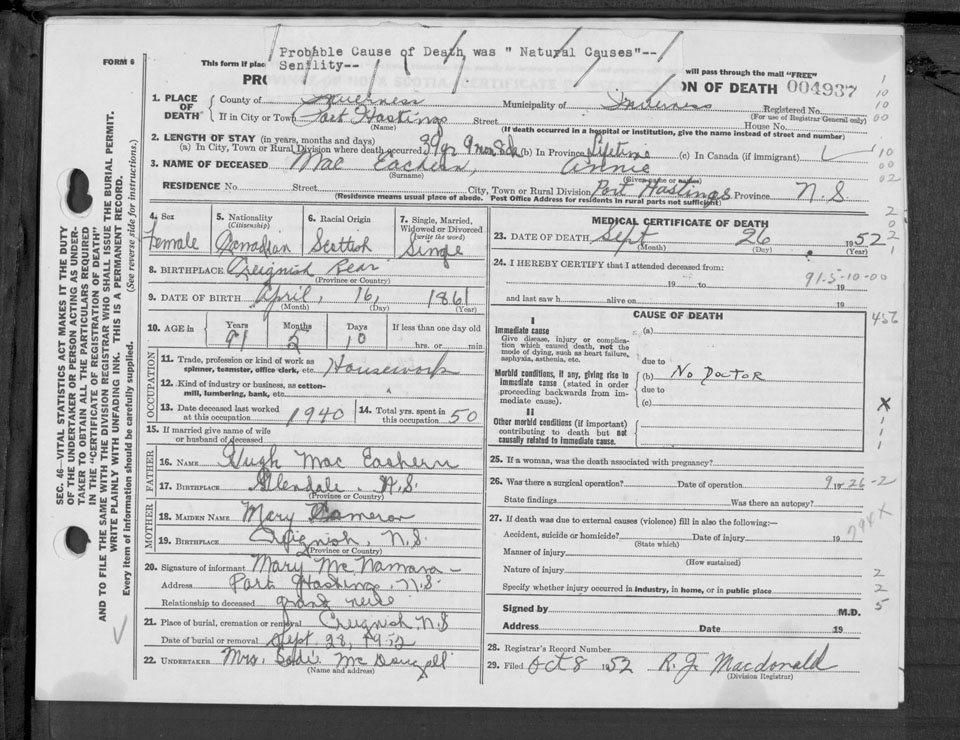 Probable Cause of Death was " Natural Causes"--
Senility--
FORM 6
This form if place
will pass through the mail "FREE"
PRO
ON OF DEATH 004937
1. PLACE OF DEATH
County of Inverness Municipality of Inverness Registered No.
(For use of Registrar General only)
If in City or Town Port Hastings Street House No.
(Name) (If death occurred in a hospital or institution, give the name instead of street and number)
2. LENGTH OF STAY (in years, months and days)
(a) In City, Town or Rural Division where death occurred 39 yr 9 mon 8 da (b) In Province Lifetime (c) In Canada (if immigrant)
3. NAME OF DECEASED Mac Eachern, Annie
(Surname) (Given name or names)
RESIDENCE No. Street City, Town or Rural Division Port Hastings Province N.S
(Residence means usual place of abode. Post Office Address for residents in rural parts not sufficient)
4. Sex Female
5. Nationality (Citizenship) Canadian
6. Racial Origin Scottish
7. Single, Married, Widowed or Divorced (write the word) Single
8. BIRTHPLACE Creignish Rear
(Province or Country)
9. DATE OF BIRTH April, 16, 1861
(Month) (Day) (Year)
10. AGE in Years Months Days If less than one day old
91 5 10 hrs. or min.
OCCUPATION
11. Trade, profession or kind of work as spinner, teamster, office clerk, etc. Housework
12. Kind of industry or business, as cotton-mill, lumbering, bank, etc.
13. Date deceased last worked at this occupation 1940
14. Total yrs. spent in this occupation 50
15. If married give name of wife or husband of deceased
FATHER
16. NAME Hugh Mac Eachern
17. BIRTHPLACE Glendale N.S.
(Province or Country)
MOTHER
18. MAIDEN NAME Mary Cameron
19. BIRTHPLACE Creignish, N.S.
(Province or Country)
20. Signature of informant Mary Mc Namara
Address Port Hastings, N.S.
Relationship to deceased grand neice
21. Place of burial, cremation or removal Creignish N.S
Date of burial or removal Sept 28, 1952
22. UNDERTAKER Mrs. Mc Dougall
(Name and address)
MEDICAL CERTIFICATE OF DEATH
23. DATE OF DEATH Sept 26 1952
(Month) (Day) (Year)
24. I HEREBY CERTIFY that I attended deceased from:
19 to 19
91-5-10-00
and last saw h alive on 19
CAUSE OF DEATH
I
Immediate cause (a)
Give disease, injury or complication which caused death, not the mode of dying, such as heart failure, asphyxia, asthenia, etc.
due to
Morbid conditions, if any, giving rise to immediate cause (stated in order proceeding backwards from immediate cause).
(b) No Doctor
due to
(c)
II
Other morbid conditions (if important) contributing to death but not causally related to immediate cause.
456
25. If a woman, was the death associated with pregnancy?
26. Was there a surgical operation? Date of operation 19
9-26-2
State findings Was there an autopsy?
27. If death was due to external causes (violence) fill in also the following:—
Accident, suicide or homicide? Date of injury 19
794X
(State which)
Manner of injury
(How sustained)
Nature of injury
Specify whether injury occurred in industry, in home, or in public place
Signed by M.D.
Address Date 19
28. Registrar's Record Number
29. Filed Oct 8 1952 R. J. Macdonald
(Division Registrar)
SEC. 46—VITAL STATISTICS ACT MAKES IT THE DUTY
OF THE UNDERTAKER OR PERSON ACTING AS UNDER-
TAKER TO OBTAIN ALL THE PARTICULARS REQUIRED
IN THE "CERTIFICATE OF REGISTRATION OF DEATH"
AND TO FILE THE SAME WITH THE DIVISION REGISTRAR WHO SHALL ISSUE THE BURIAL PERMIT.
WRITE PLAINLY WITH UNFADING INK. THIS IS A PERMANENT RECORD.
Every item of Information should be carefully supplied. (See reverse side for instructions.)